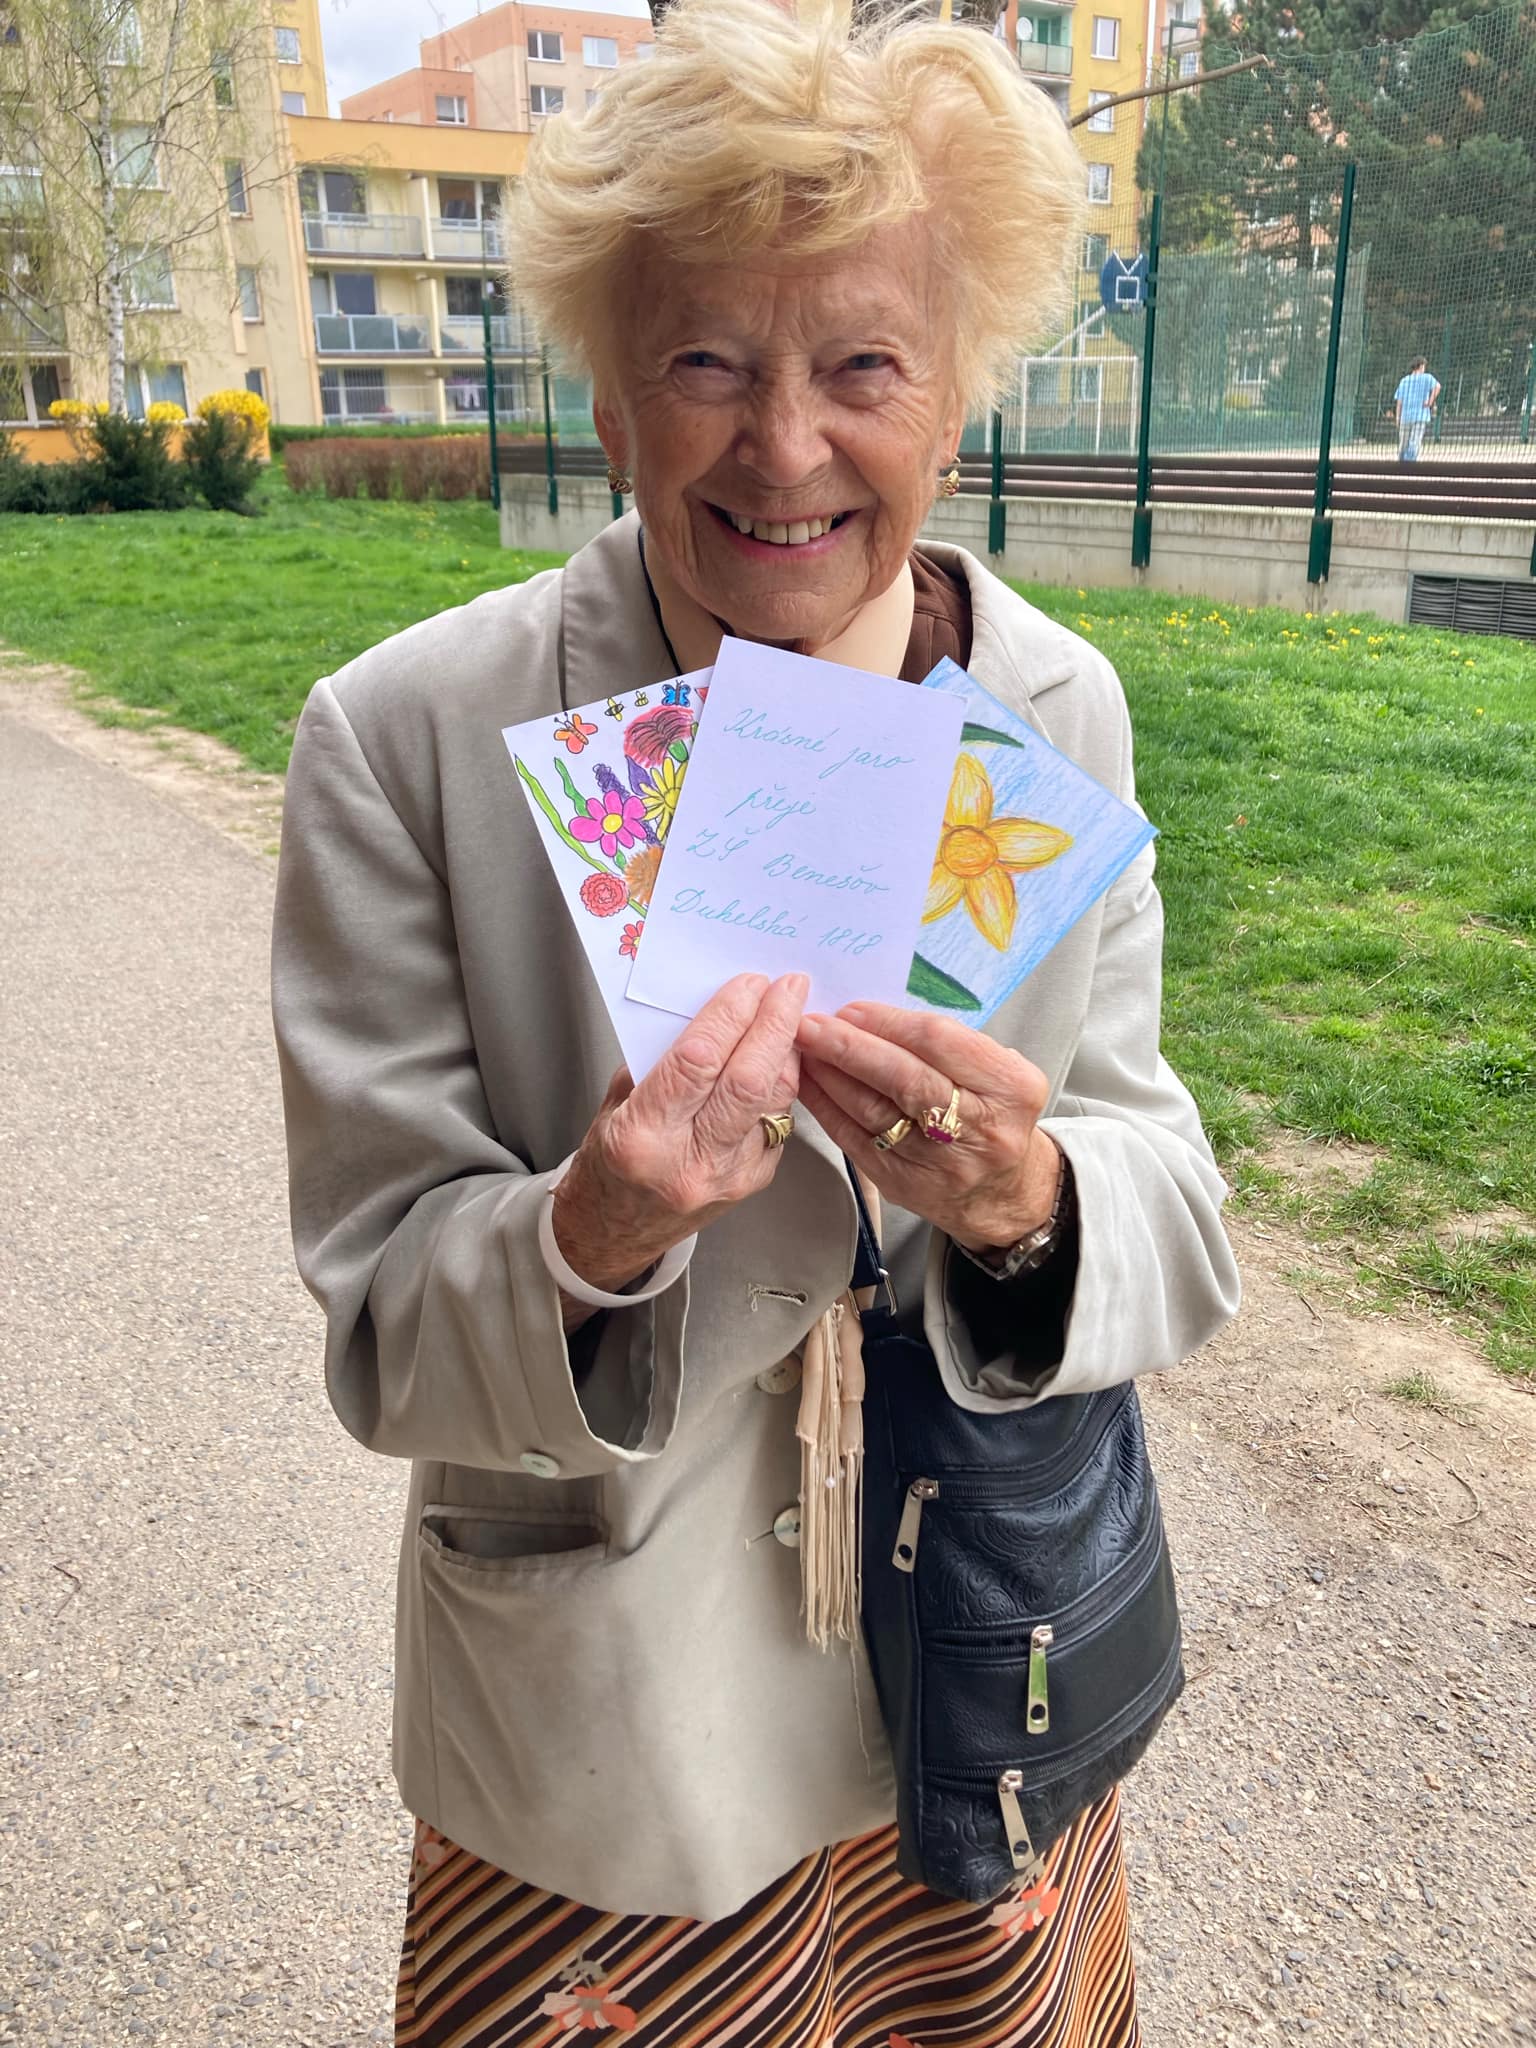 Krásné jaro
přeje
ZŠ Benešov
Dukelská 1818